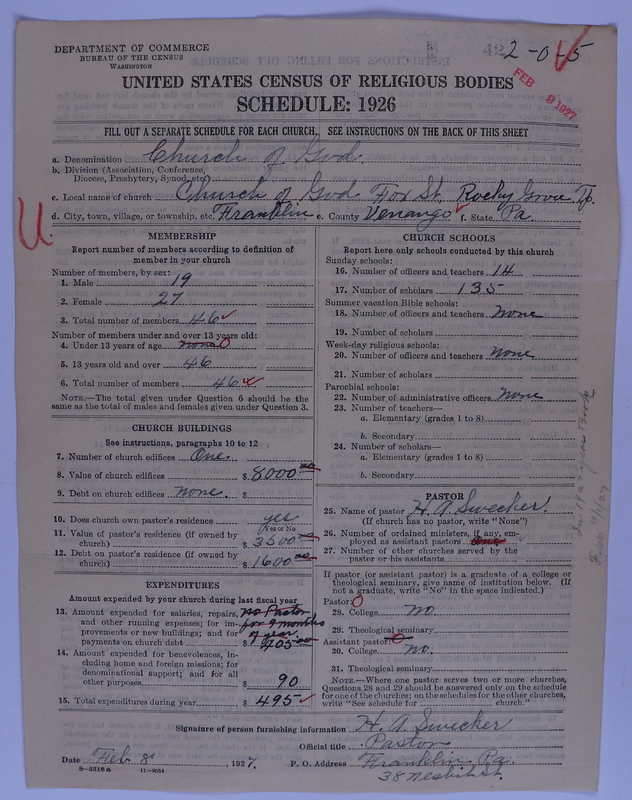 DEPARTMENT OF COMMERCE
BUREAU OF THE CENSUS
WASHINGTON
422-0-5
FEB 9 1927
UNITED STATES CENSUS OF RELIGIOUS BODIES
SCHEDULE: 1926
FILL OUT A SEPARATE SCHEDULE FOR EACH CHURCH. SEE INSTRUCTIONS ON THE BACK OF THIS SHEET
a. Denomination Church of God.
b. Division (Association, Conference,
Diocese, Presbytery, Synod, etc.)
c. Local name of church Church of God Fox St. Rocky Grove Tp.
d. City, town, village, or township, etc. Franklin e. County Venango f. State Pa.
MEMBERSHIP
Report number of members according to definition of
member in your church
Number of members, by sex:
1. Male 19
2. Female 27
3. Total number of members 46
Number of members under and over 13 years old:
4. Under 13 years of age none 0
5. 13 years old and over 46
6. Total number of members 46
NOTE.—The total given under Question 6 should be the
same as the total of males and females given under Question 3.
CHURCH BUILDINGS
See instructions, paragraphs 10 to 12
7. Number of church edifices One
8. Value of church edifices $ 8000 00
9. Debt on church edifices none. $
10. Does church own pastor's residence yes
Yes or No
11. Value of pastor's residence (if owned by
church) $ 3500 00
12. Debt on pastor's residence (if owned by
church) $ 1600 00
EXPENDITURES
Amount expended by church during last fiscal year
13. Amount expended for salaries, repairs, no Pastor
and other running expenses; for im- for 9 months
provements or new buildings; and for 9 year
payments on church debt $ 405 00
14. Amount expended for benevolences, in-
cluding home and foreign missions; for
denominational support; and for all
other purposes $ 90
15. Total expenditures during year $ 495
CHURCH SCHOOLS
Report here only schools conducted by this church
Sunday schools:
16. Number of officers and teachers 14
17. Number of scholars 135
Summer vacation Bible schools:
18. Number of officers and teachers none
19. Number of scholars
Week-day religious schools:
20. Number of officers and teachers none
21. Number of scholars
Parochial schools:
22. Number of administrative officers none
23. Number of teachers—
a. Elementary (grades 1 to 8)
b. Secondary
24. Number of scholars—
a. Elementary (grades 1 to 8)
b. Secondary
PASTOR
25. Name of pastor H. A. Swecker.
(If church has no pastor, write "None")
26. Number of ordained ministers, if any, em-
ployed as assistant pastors
27. Number of other churches served by the
pastor or his assistants
If pastor (or assistant pastor) is a graduate of a college or
theological seminary, give name of institution below. (If
not a graduate, write "No" in the space indicated.)
Pastor: 0
28. College no.
29. Theological seminary
Assistant pastor: 0
30. College no.
31. Theological seminary
NOTE.—Where one pastor serves two or more churches,
Questions 28 and 29 should be answered only on the schedule
for one of the churches; on the schedules for the other churches,
write "See schedule for church."
Signature of person furnishing information H. A. Swecker
Official title Pastor
Date Feb 8, 1927. P. O. Address Franklin Pa.
38 Nesbit St.
8—5518 a 11—9034